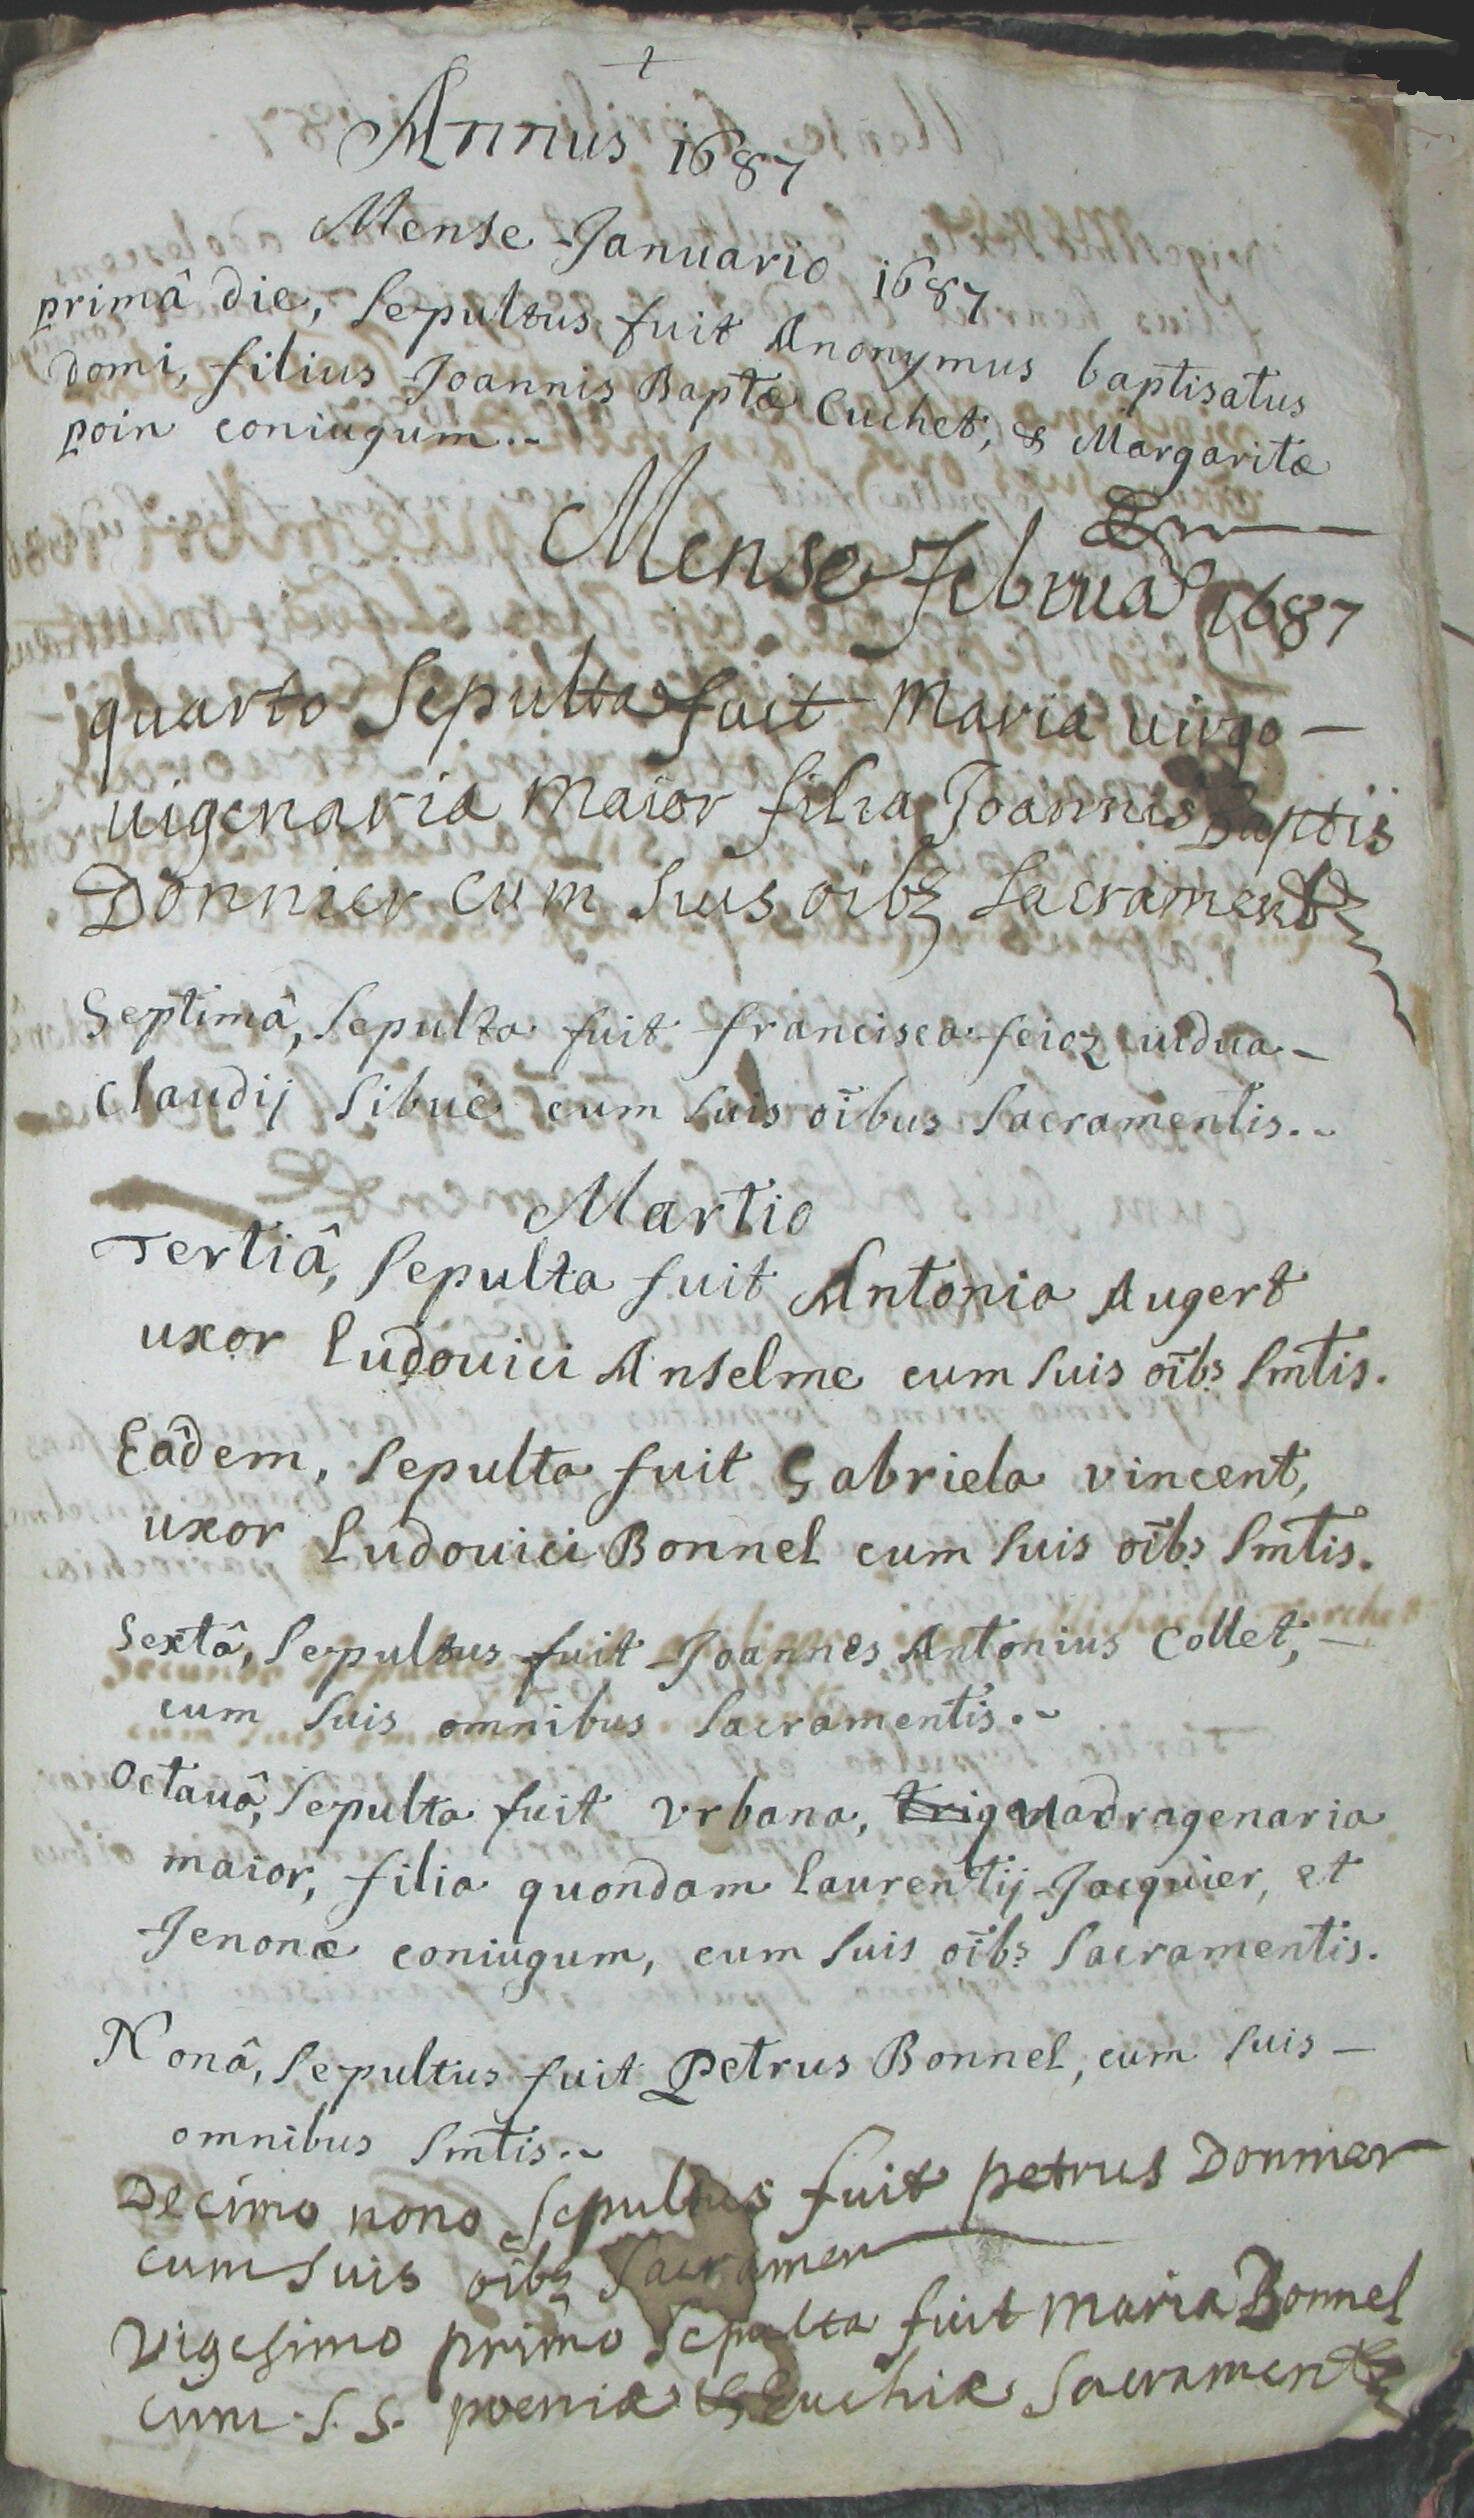 Annus 1687
Mense Januario 1687
primâ die, sepultus fuit Anonymus baptisatus
domi, filius Joannis Baptæ Cuchet, & Margaritæ
poin coniugum..
Mense Februa 1687
quarto sepulta fuit Maria uirgo —
uigenaria maior filia Joannis Baptis
Donnier cum suis oibz sacrament
Septimâ, sepulta fuit francisca feioz uidua —
Claudij Sibué cum suis oībus sacramentis..
Martio
Tertiâ, sepulta fuit Antonia Augert
uxor Ludouici Anselme cum suis oībs smtis.
Eâdem, sepulta fuit Gabriela vincent,
uxor Ludouici Bonnel cum suis oībs smtis.
Sextâ, sepultus fuit Joannes Antonius Collet, —
cum suis omnibus sacramentis..
Octauâ, sepulta fuit vrbana, quadragenaria
maior, filia quondam Laurentij Jacquier, et
Jenonæ coniugum, cum suis oībs sacramentis.
Nonâ, sepultus fuit Petrus Bonnel, cum suis —
omnibus smtis..
Decimo nono sepultus fuit petrus Donnier
cum suis oībz sacramen
vigesimo primo sepulta fuit maria Bonnel
cum s. s. poeniæ & Euchiæ sacrament